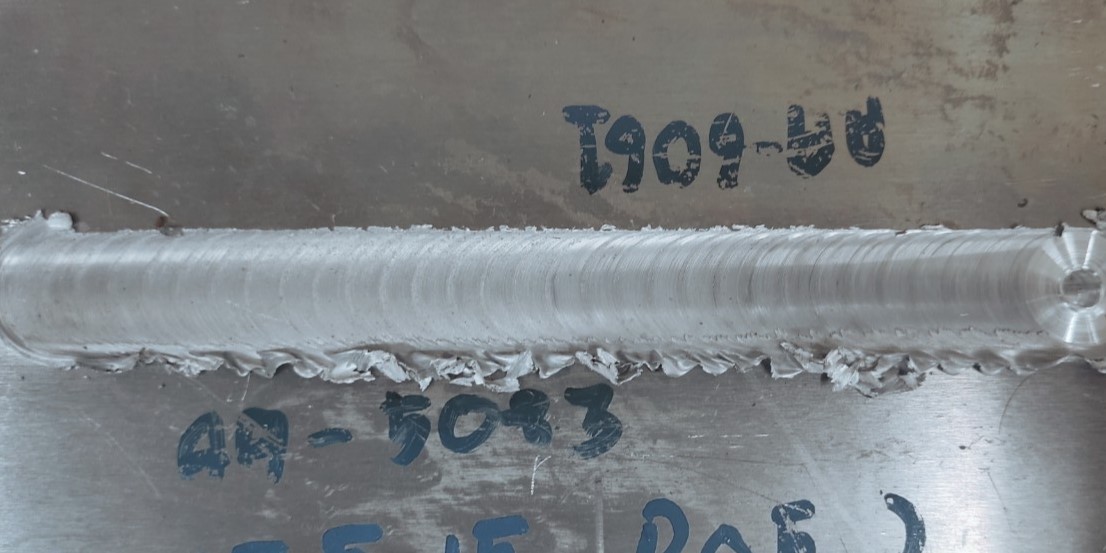 AA-6061
AA-5083